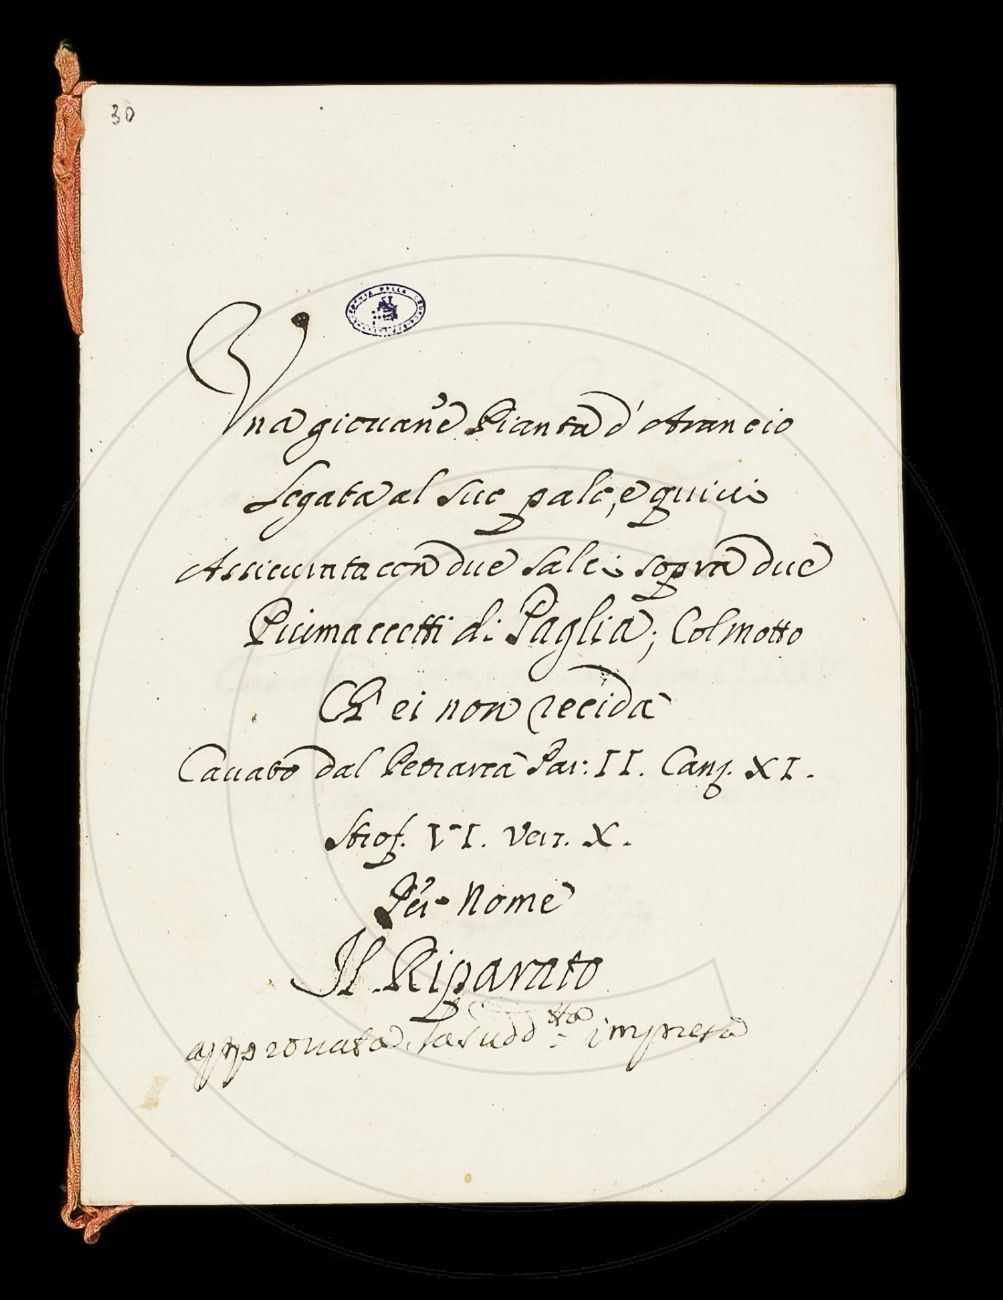 30
Una giovane Pianta d'Arancio
legata al suo palo, e quivi
Assicurata con due sali sopra due
Piumaccetti di Paglia; Col motto
Ch' ei non recida
Cavato dal Petrarca Par: II. Canz. XI.
Strof. VI. Ver. X.
Per Nome
Il Riparato
approvata la sudd.tta impresa